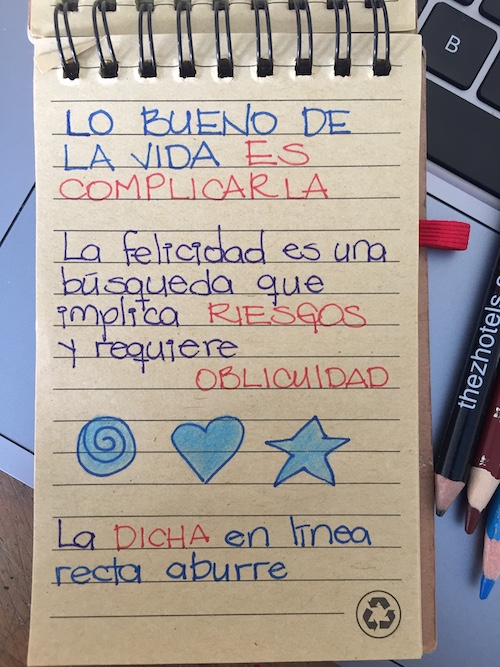 LO BUENO DE
LA VIDA ES
COMPLICARLA
La felicidad es una
búsqueda que
implica RIESGOS
y requiere
OBLICUIDAD
La DICHA en línea
recta aburre
B
thezhotels.c